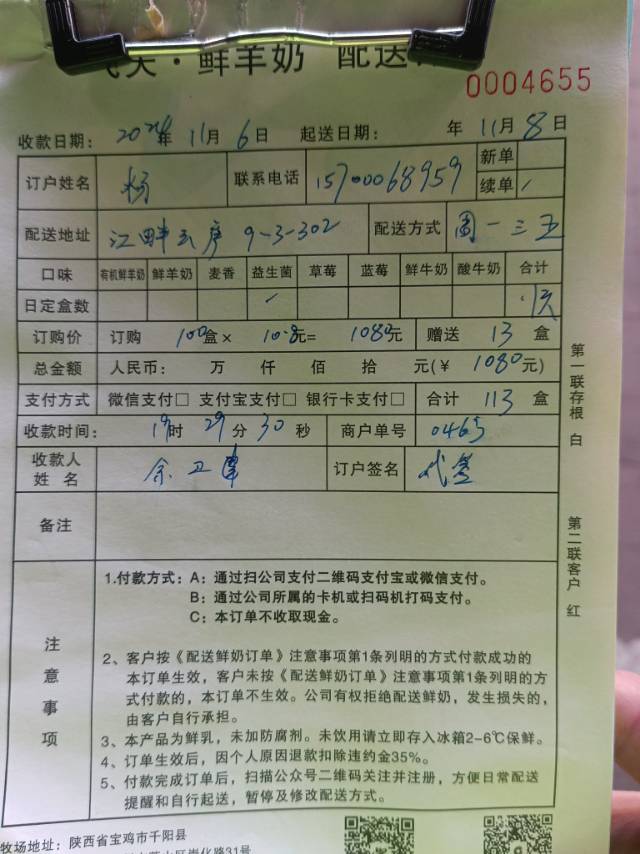 ·鲜羊奶 配送
0004655
收款日期: 2024年 11月 6日 起送日期: 年 11月 8日
订户姓名 杨 联系电话 15700068959 新单
续单 /
配送地址 江畔云庐 9-3-302 配送方式 周一三五
口味 有机鲜羊奶 鲜羊奶 麦香 益生菌 草莓 蓝莓 鲜牛奶 酸牛奶 合计
日定盒数 /
订购价 订购 100盒× 10.8元= 1080元 赠送 13盒
总金额 人民币: 万 仟 佰 拾 元(¥ 1080元)
支付方式 微信支付□ 支付宝支付□ 银行卡支付□ 合计 113盒
收款时间: 19时 29分 30秒 商户单号 0465
收款人姓名 余卫 订户签名 代签
备注
注意事项
1.付款方式:A:通过扫公司支付二维码支付宝或微信支付。
B:通过公司所属的卡机或扫码机打码支付。
C:本订单不收取现金。
2、客户按《配送鲜奶订单》注意事项第1条列明的方式付款成功的
本订单生效,客户未按《配送鲜奶订单》注意事项第1条列明的方
式付款的,本订单不生效。公司有权拒绝配送鲜奶,发生损失的,
由客户自行承担。
3、本产品为鲜乳,未加防腐剂。未饮用请立即存入冰箱2-6℃保鲜。
4、订单生效后,因个人原因退款扣除违约金35%。
5、付款完成订单后,扫描公众号二维码关注并注册,方便日常配送
提醒和自行起送,暂停及修改配送方式。
牧场地址:陕西省宝鸡市千阳县
第一联存根 白
第二联客户 红